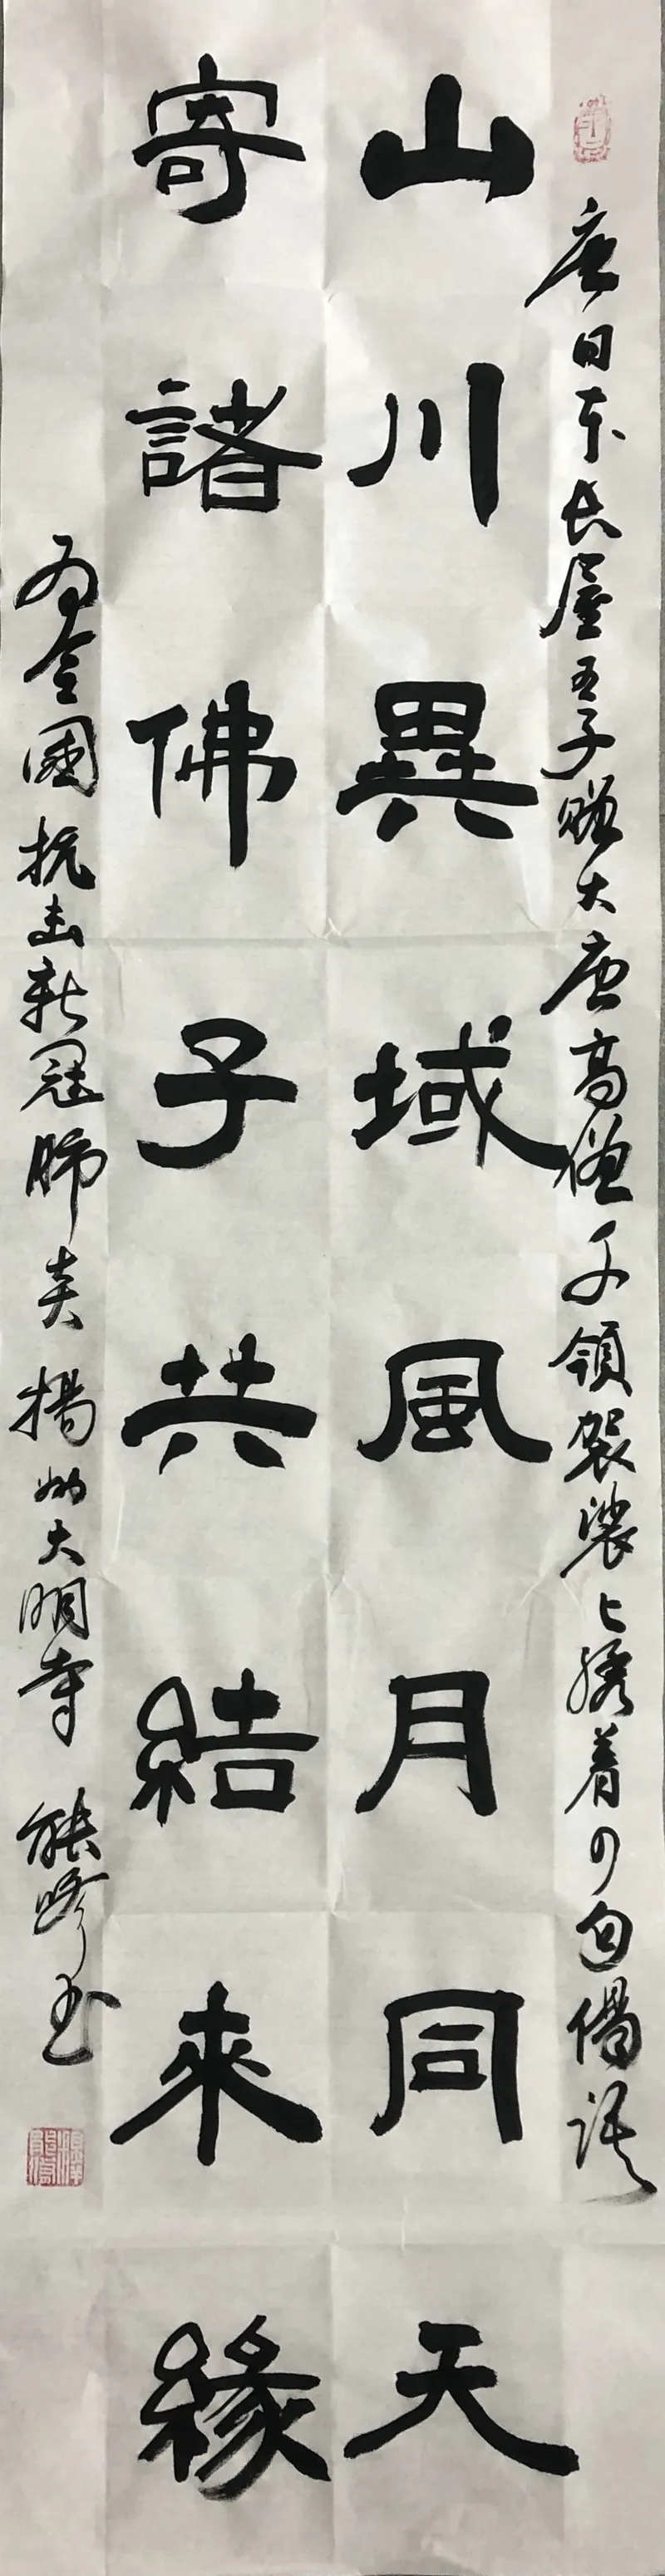 唐日本長屋王子贈大唐高僧千領袈裟上綉着的四句偈語
山川異域風月同天
寄諸佛子共結來緣
為全國抗击新冠肺炎揚州大明寺能修書